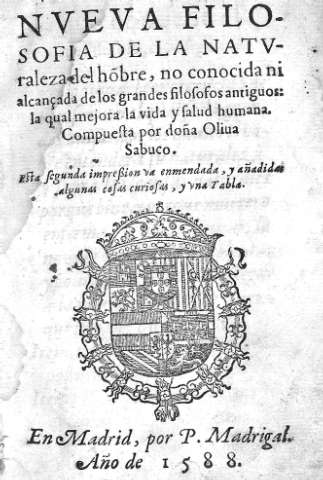 NVEVA FILO-
SOFIA DE LA NATV-
raleza del hõbre, no conocida ni
alcançada de los grandes filosofos antiguos:
la qual mejora la vida y salud humana.
Compuesta por doña Oliua
Sabuco.
Esta segunda impreßion va enmendada, y añadidas
algunas cosas curiosas, y vna Tabla.
En Madrid, por P. Madrigal.
Año de 1588.